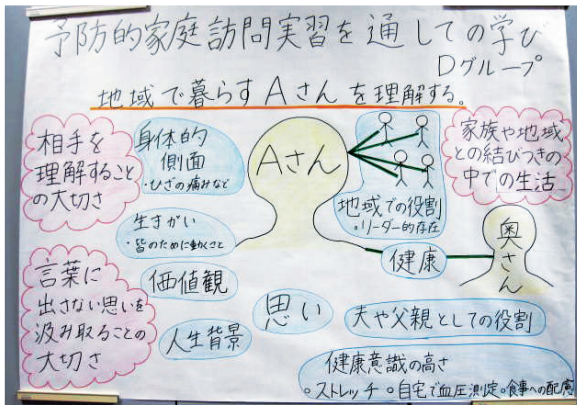 予防的家庭訪問実習を通しての学び
Dグループ
地域で暮らすAさんを理解する。
相手を
理解すること
の大切さ
身体的
側面
・ひざの痛みなど
Aさん
地域での役割
・リーダー的存在
家族や地域
との結びつきの
中での生活
生きがい
・皆のために動くこと
健康
奥さん
言葉に
出さない思いを
汲み取ることの
大切さ
価値観
思い
人生背景
夫や父親としての役割
健康意識の高さ
○ストレッチ ○自宅で血圧測定 ○食事への配慮